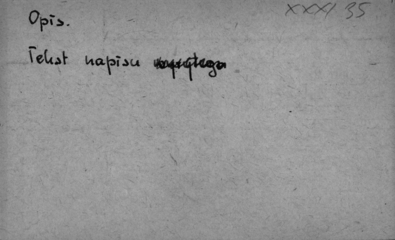 XXXI 35
Opis.
Tekst napisu